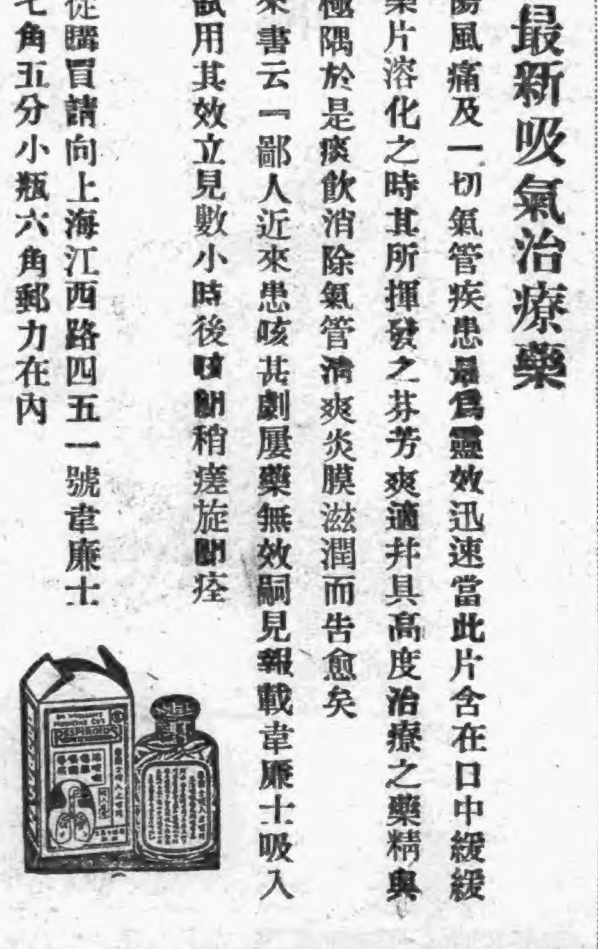 最新吸氣治療藥
傷風痛及一切氣管疾患最爲靈效迅速當此片含在口中緩緩
藥片溶化之時其所揮發之芬芳爽適并具高度治療之藥精與
極隅於是痰飲消除氣管清爽炎膜滋潤而告愈矣
來書云『鄙人近來患咳甚劇屢藥無效嗣見報載韋廉士吸入
試用其效立見數小時後咳嗽稍瘥旋卽痊
從購買請向上海江西路四五一號韋廉士
七角五分小瓶六角郵力在內
DR WILLIAMS
MEDICINE CO'S
RESPIROIDS